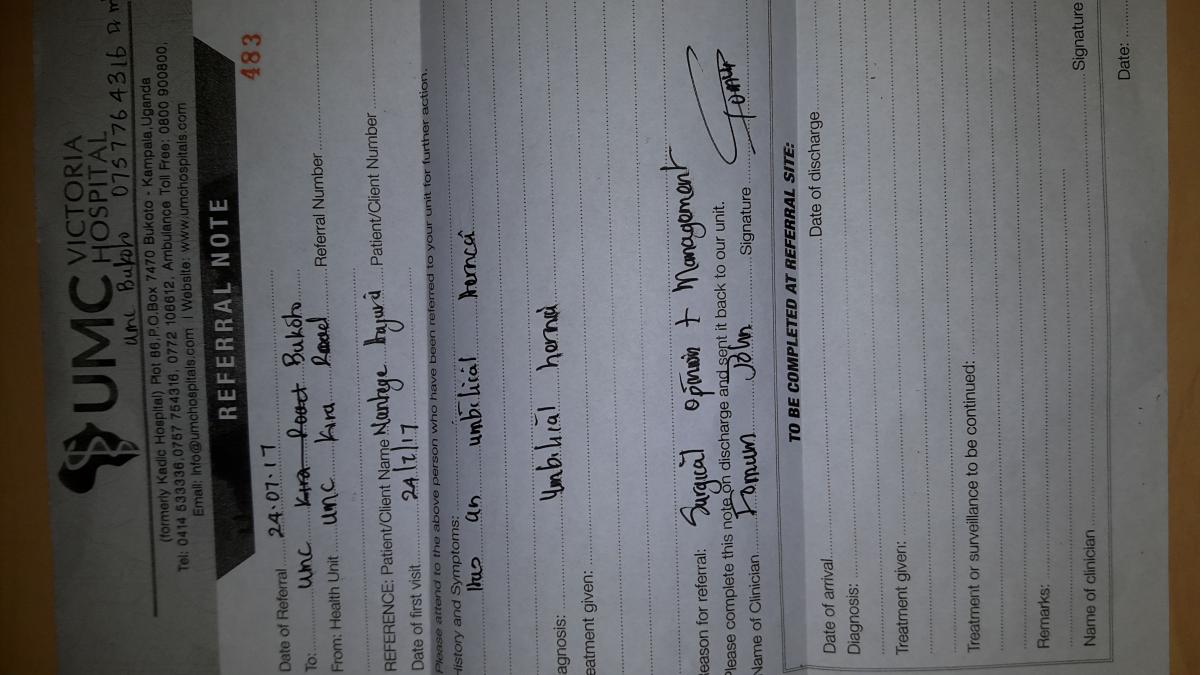 UMC VICTORIA HOSPITAL
UMC Bukoto 0757764316 Dr M
(formerly Kadic Hospital) Plot 86,P.O.Box 7470 Bukoto - Kampala,Uganda
Tel: 0414 533336,0757 754316, 0772 106612, Ambulance Toll Free: 0800 900800,
Email: Info@umchospitals.com | Website: www.umchospitals.com
REFERRAL NOTE
483
Date of Referral 24.07.17
To: UMC Kira Road Bukoto Referral Number
From: Health Unit UMC Kira Road
REFERENCE: Patient/Client Name Patient/Client Number
Date of first visit 24/7/17
Please attend to the above person who have been referred to your unit for further action.
History and Symptoms:
Has an umbilical hernia
agnosis: Umbilical hernia
eatment given:
eason for referral: Surgical opinion + Management
Please complete this note on discharge and sent it back to our unit.
Name of Clinician John Signature
TO BE COMPLETED AT REFERRAL SITE:
Date of arrival Date of discharge
Diagnosis:
Treatment given:
Treatment or surveillance to be continued:
Remarks:
Name of clinician Signature
Date: